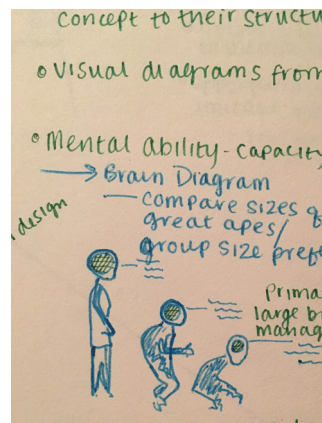 concept to their structu
• Visual diagrams from
• Mental ability - capacity
→ Brain Diagram
— compare sizes
great apes/
group size pref
design
Prima
large b
manag